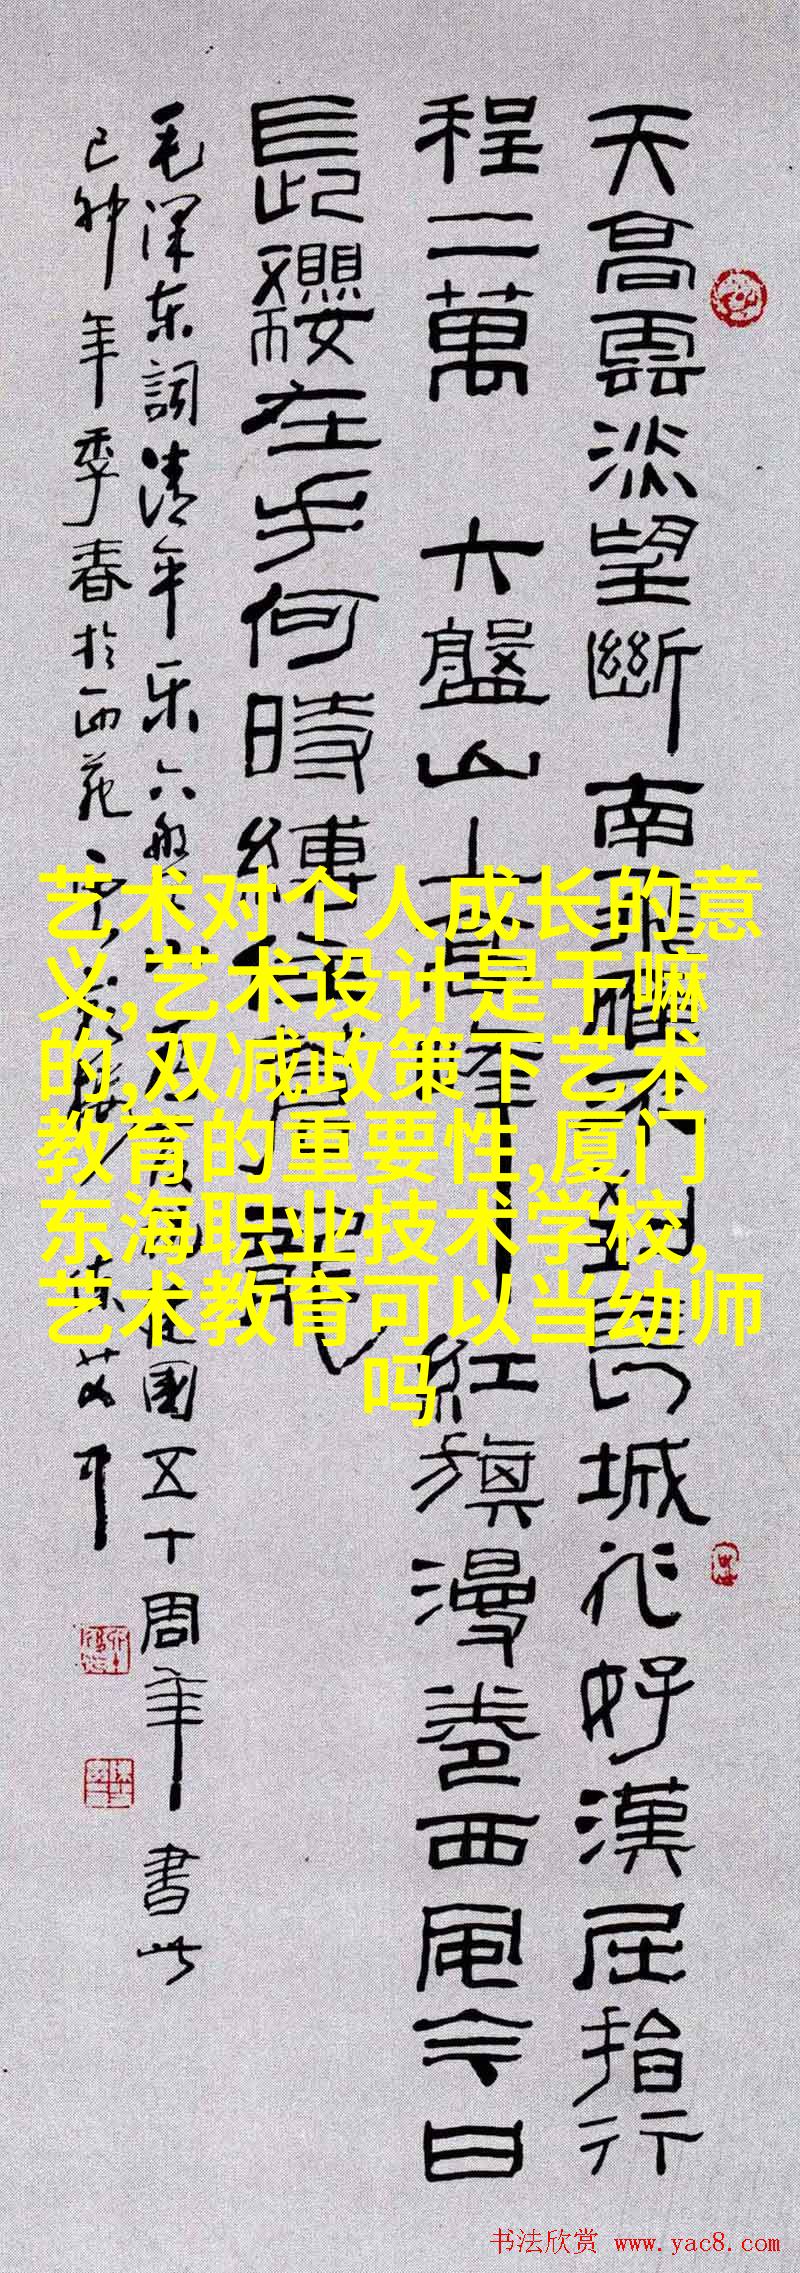 天高雲淡望斷南飛雁不到長城非好漢屈指行
程二萬 六盤山上高峰 紅旗漫卷西風今日
長纓在手何時縛住蒼龍
毛澤东詞清平乐六盤山 國五十周年書此
己卯年季春於西苑
艺术对个人成长的意
义,艺术设计是干嘛
的,双减政策下艺术
教育的重要性,厦门
东海职业技术学校,
艺术教育可以当幼师
吗
书法欣赏 www.yac8.com